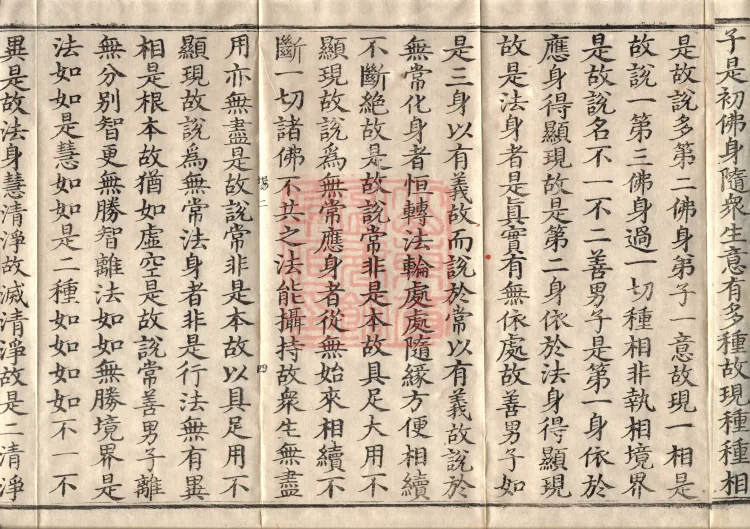 子是初佛身隨衆生意有多種故現種種相
是故說多第二佛身弟子一意故現一相是
故說一第三佛身過一切種相非執相境界
是故說名不一不二善男子是第一身依於
應身得顯現故是第二身依於法身得顯現
故是法身者是眞實有無依處故善男子如
是三身以有義故而說於常以有義故說於
無常化身者恒轉法輪處處隨緣方便相續
不斷絕故是故說常非是本故具足大用不
顯現故說爲無常應身者從無始來相續不
斷一切諸佛不共之法能攝持故衆生無盡
用亦無盡是故說常非是本故以具足用不
顯現故說爲無常法身者非是行法無有異
相是根本故猶如虛空是故說常善男子離
無分别智更無勝智離法如如無勝境界是
法如如是慧如如是二種如如如如不一不
異是故法身慧清淨故滅清淨故是二清淨
四